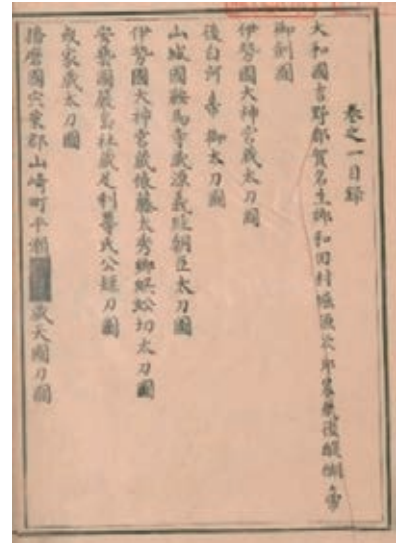 巻之一目録
大和國吉野郡賀名生郷和田村堀源次郎家藏後醍醐帝
御劍圖
伊勢國大神宮蔵太刀圖
後白河帝御太刀圖
山城國鞍馬寺蔵源義經朝臣太刀圖
伊勢國大神宮蔵俵藤太秀郷蜈蚣切太刀圖
安藝國嚴島社蔵足利尊氏公短刀圖
或家蔵太刀圖
播磨國宍粟郡山崎町平瀬蔵天國刀圖